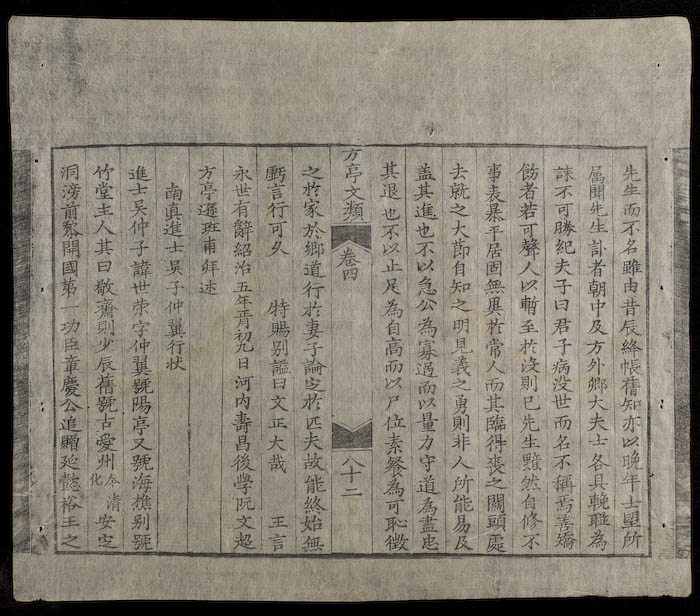 先生而不名雖由昔辰絳帳舊知亦以晚年士望所
屬聞先生訃者朝中及方外鄉大夫士各具輓聯為
誄不可勝紀夫子曰君子病沒世而名不稱焉善矯
飾者若可聲人以暫至於沒則已先生黯然自修不
事表暴平居固無異於常人而其臨得喪之關頭處
去就之大節自知之明見義之勇則非人所能易及
蓋其進也不以急公為寡過而以量力守道為盡忠
其退也不以止足為自高而以尸位素餐為可恥徵
方亭文類
卷四
八十二
之於家於鄉道行於妻子論定於匹夫故能終始無
虧言行可久 特賜別諡曰文正大哉 王言
永世有辭紹治五年胥初九日河內壽昌後學阮文超
方亭遜班甫拜述
南真進士吳子仲翼行状
進士吳仲子諱世榮字仲翼號陽亭又號海樵別號
竹堂主人其曰敬齋則少辰舊號古愛州今清化安定
洞滂前黎開國第一功臣章慶公追贈延懿裕王之